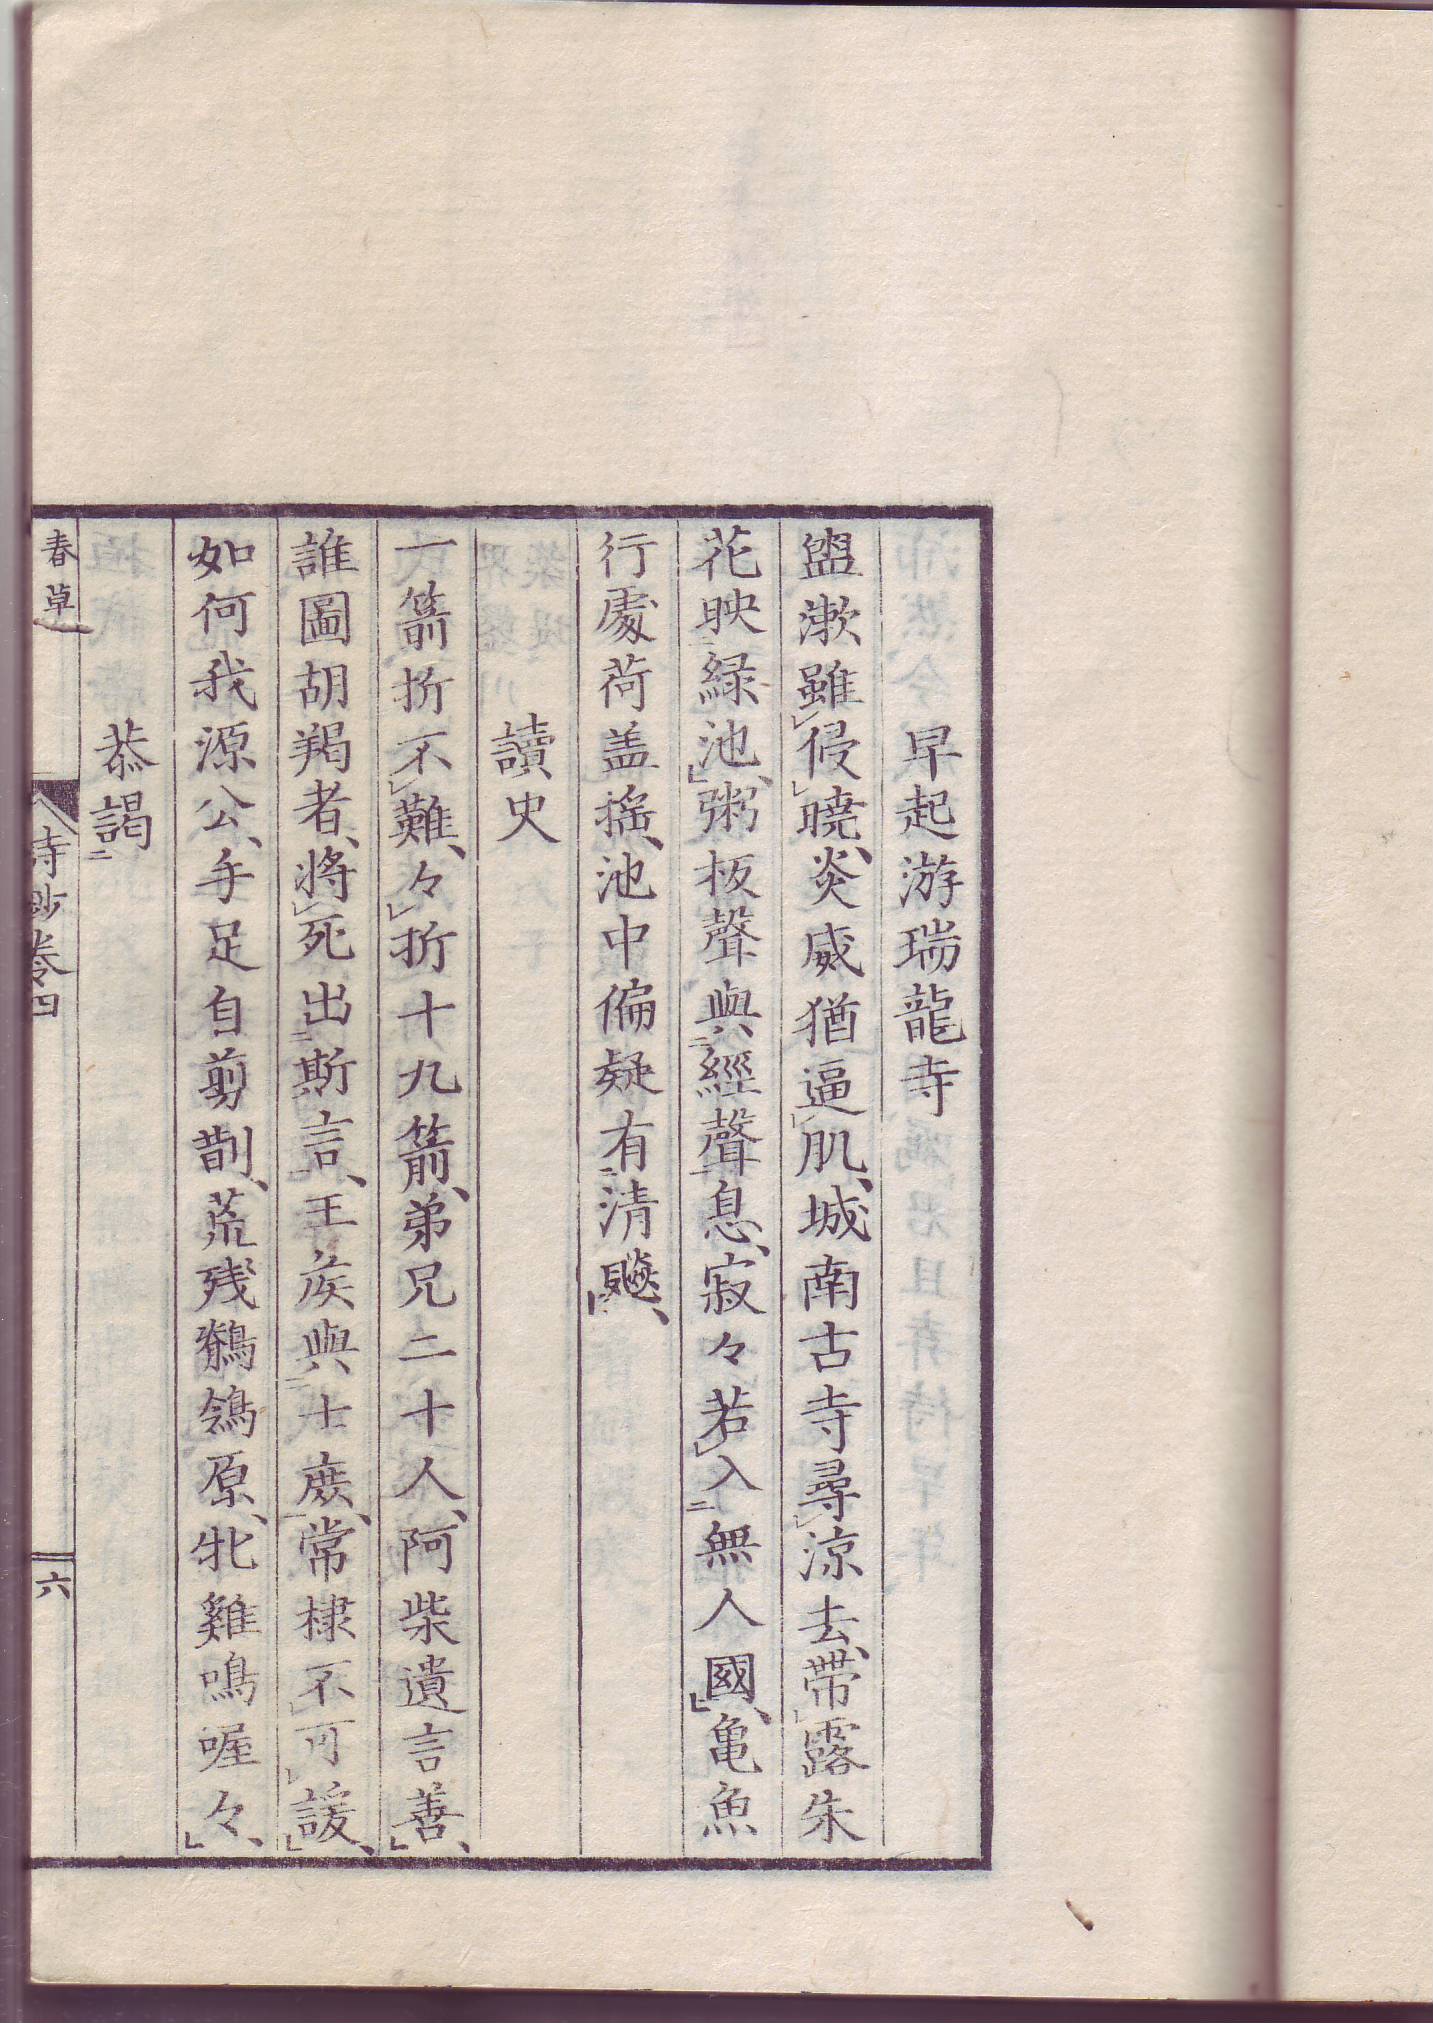 早起游瑞龍寺
盥漱雖侵曉、炎威猶逼肌、城南古寺尋涼去、帶露朱
花映緑池、粥板聲與經聲息、寂々若入無人國、亀魚
行處荷盖搖、池中偏疑有清飈、
讀史
一箭折不難、々折十九箭、弟兄二十人、阿柴遺言善、
誰圖胡羯者、將死出斯言、王侯與士庶、常棣不可諼、
如何我源公、手足自剪剒、荒残鶺鴒原、牝雞鳴喔々、
恭謁
春草 詩鈔卷四 六